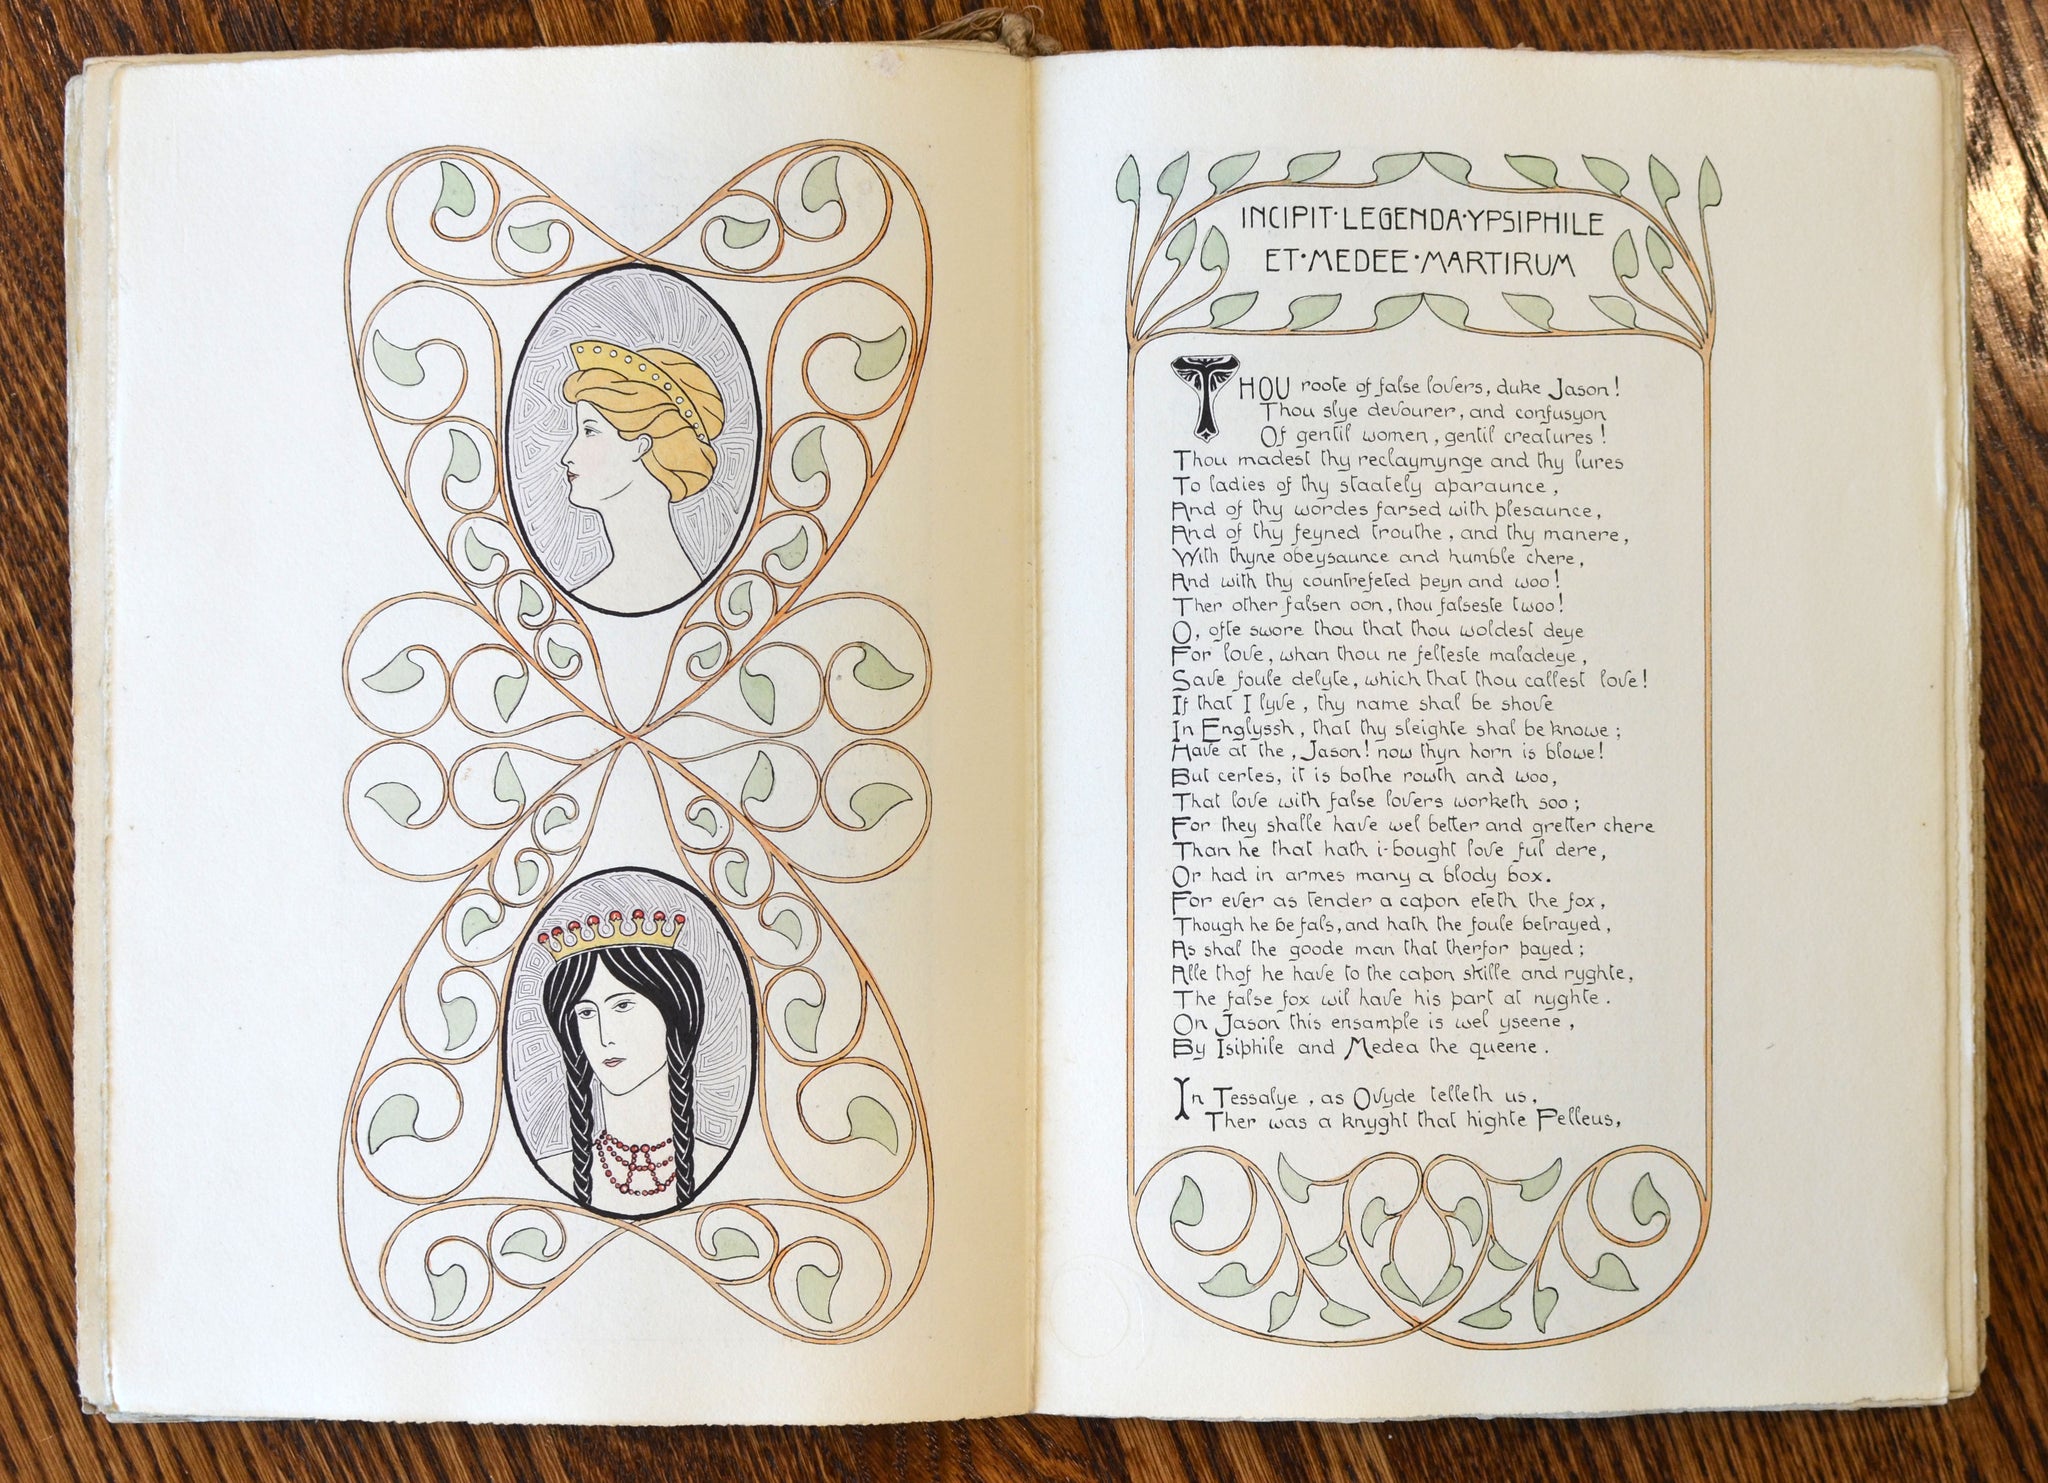 INCIPIT·LEGENDA·YPSIPHILE
ET·MEDEE·MARTIRUM
THOU roote of false lovers, duke Jason!
Thou slye devourer, and confusyon
Of gentil women, gentil creatures!
Thou madest thy reclaymynge and thy lures
To ladies of thy staately aparaunce,
And of thy wordes farsed with plesaunce,
And of thy feyned trouthe, and thy manere,
With thyne obeysaunce and humble chere,
And with thy countrefeted peyn and woo!
Ther other falsen oon, thou falseste twoo!
O, ofte swore thou that thou woldest deye
For love, whan thou ne felteste maladeye,
Save foule delyte, which that thou callest love!
If that I lyve, thy name shal be shove
In Englyssh, that thy sleighte shal be knowe;
Have at the, Jason! now thyn horn is blowe!
But certes, it is bothe rowth and woo,
That love with false lovers worketh soo;
For they shalle have wel better and gretter chere
Than he that hath i-bought love ful dere,
Or had in armes many a blody box.
For ever as tender a capon eteth the fox,
Though he be fals, and hath the foule betrayed,
As shal the goode man that therfor payed;
Alle thof he have to the capon skille and ryghte,
The false fox wil have his part at nyghte.
On Jason this ensample is wel yseene,
By Isiphile and Medea the queene.
In Tessalye, as Ovyde telleth us,
Ther was a knyght that highte Pelleus,